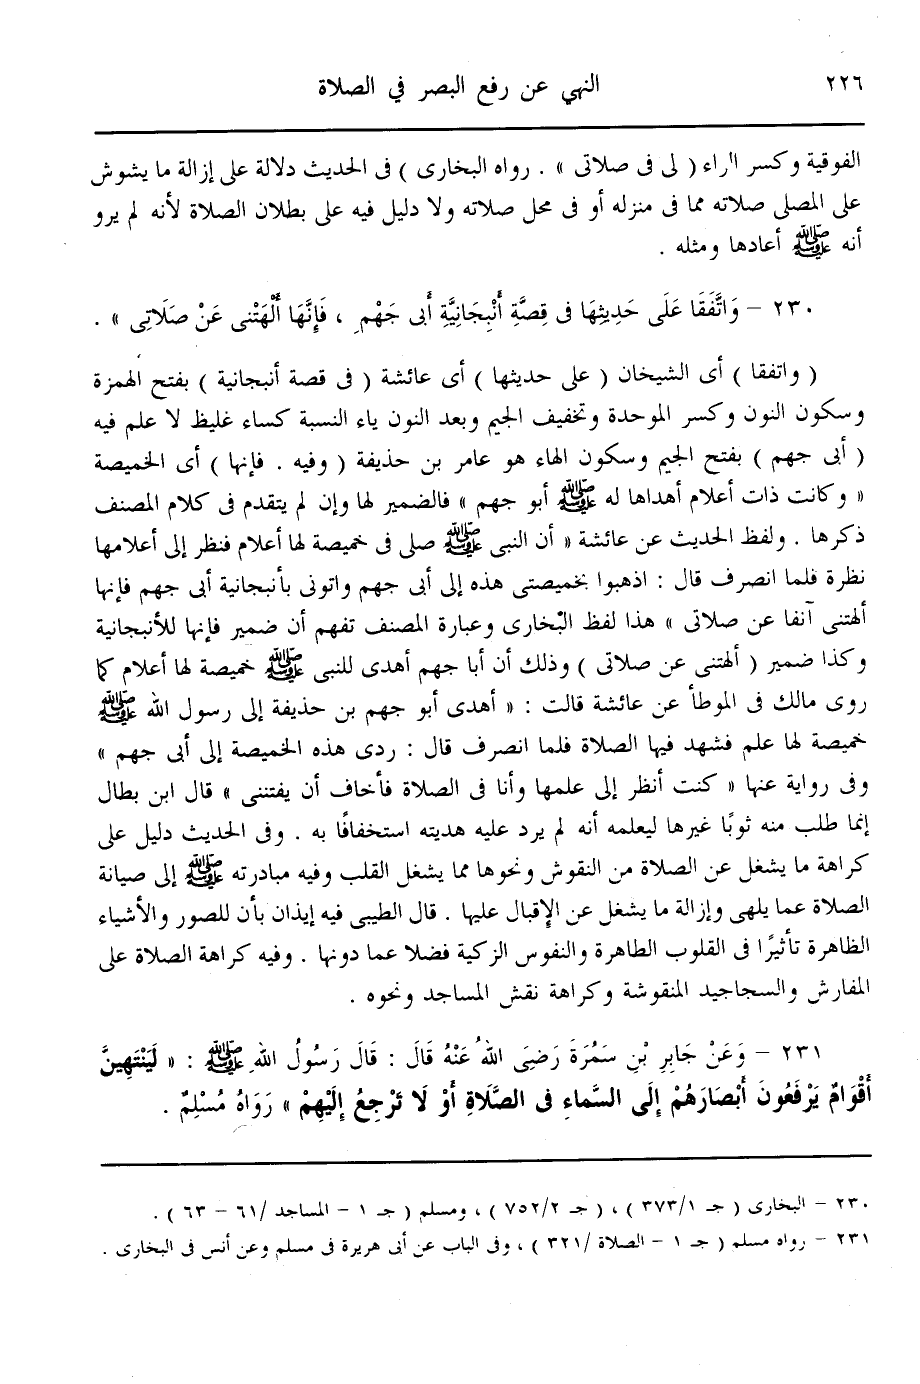 ٢٢٦ النهي عن رفع البصر في الصلاة
الفوقية وكسر الراء ( لى فى صلاتى » . رواه البخارى ) فى الحديث دلالة على إزالة ما يشوش
على المصلى صلاته مما فى منزله أو فى محل صلاته ولا دليل فيه على بطلان الصلاة لأنه لم يرو
أنه ﷺ أعادها ومثله .
٢٣٠ – وَاتَّفَقَا عَلَى حَدِيثِهَا فى قِصَّةِ أَنْبِجَانِيَّةِ أَبى جَهْمٍ ، فَإِنَّهَا أَلْهَتْنى عَنْ صَلَاتِى » .
( واتفقا ) أى الشيخان ( على حديثها ) أى عائشة ( فى قصة أنبجانية ) بفتح الهمزة
وسكون النون وكسر الموحدة وتخفيف الجيم وبعد النون ياء النسبة كساء غليظ لا علم فيه
( أبى جهم ) بفتح الجيم وسكون الهاء هو عامر بن حذيفة ( وفيه . فإنها ) أى الخميصة
« وكانت ذات أعلام أهداها له ﷺ أبو جهم » فالضمير لها وإن لم يتقدم فى كلام المصنف
ذكرها . ولفظ الحديث عن عائشة « أن النبى ﷺ صلى فى خميصة لها أعلام فنظر إلى أعلامها
نظرة فلما انصرف قال : اذهبوا بخميصتى هذه إلى أبى جهم واتونى بأنبجانية أبى جهم فإنها
ألهتنى آنفا عن صلاتى » هذا لفظ البخارى وعبارة المصنف تفهم أن ضمير فإنها للأنبجانية
وكذا ضمير ( ألهتنى عن صلاتى ) وذلك أن أبا جهم أهدى للنبى ﷺ خميصة لها أعلام كما
روى مالك فى الموطأ عن عائشة قالت : « أهدى أبو جهم بن حذيفة إلى رسول الله ﷺ
خميصة لها علم فشهد فيها الصلاة فلما انصرف قال : ردى هذه الخميصة إلى أبى جهم »
وفى رواية عنها « كنت أنظر إلى علمها وأنا فى الصلاة فأخاف أن يفتننى » قال ابن بطال
إنما طلب منه ثوبًا غيرها ليعلمه أنه لم يرد عليه هديته استخفافًا به . وفى الحديث دليل على
كراهة ما يشغل عن الصلاة من النقوش ونحوها مما يشغل القلب وفيه مبادرته ﷺ إلى صيانة
الصلاة عما يلهى وإزالة ما يشغل عن الإقبال عليها . قال الطيبى فيه إيذان بأن للصور والأشياء
الظاهرة تأثيرًا فى القلوب الطاهرة والنفوس الزكية فضلا عما دونها . وفيه كراهة الصلاة على
المفارش والسجاجيد المنقوشة وكراهة نقش المساجد ونحوه .
٢٣١ – وَعَنْ جَابِرِ بْنِ سَمُرَةَ رَضِىَ اللهُ عَنْهُ قَالَ : قَالَ رَسُولُ اللهِ ﷺ : « لَيَنْتَهِينَّ
أَقْوَامٌ يَرْفَعُونَ أَبْصَارَهُمْ إِلَى السَّماءِ فى الصَّلَاةِ أَوْ لَا تَرْجِعُ إِلَيْهِمْ » رَوَاهُ مُسْلِمٌ .
٢٣٠ – البخارى ( جـ ٣٧٣/١ ) ، ( جـ ٧٥٢/٢ ) ، ومسلم ( جـ ١ – المساجد /٦١ – ٦٣ ) .
٢٣١ – رواه مسلم ( جـ ١ – الصلاة /٣٢١ ) ، وفى الباب عن أبى هريرة فى مسلم وعن أنس فى البخارى .